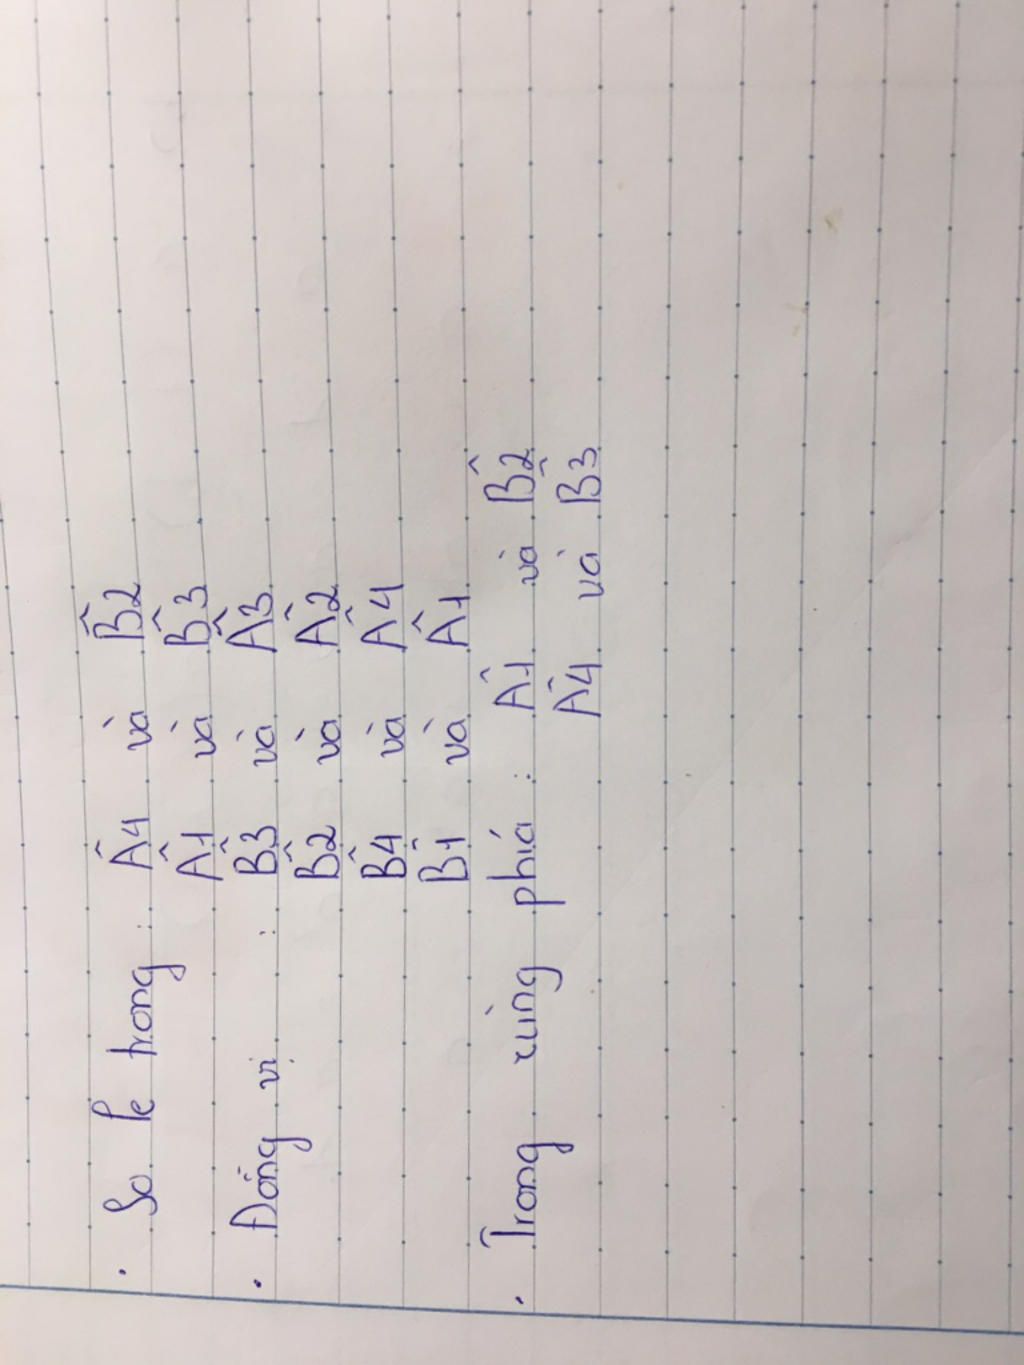 • So le trong : Â4 và B̂2
Â1 và B̂3
• Đồng vị : B̂3 và Â3
B̂2 và Â2
B̂4 và Â4
B̂1 và Â1
• Trong cùng phía : Â1 và B̂2
Â4 và B̂3